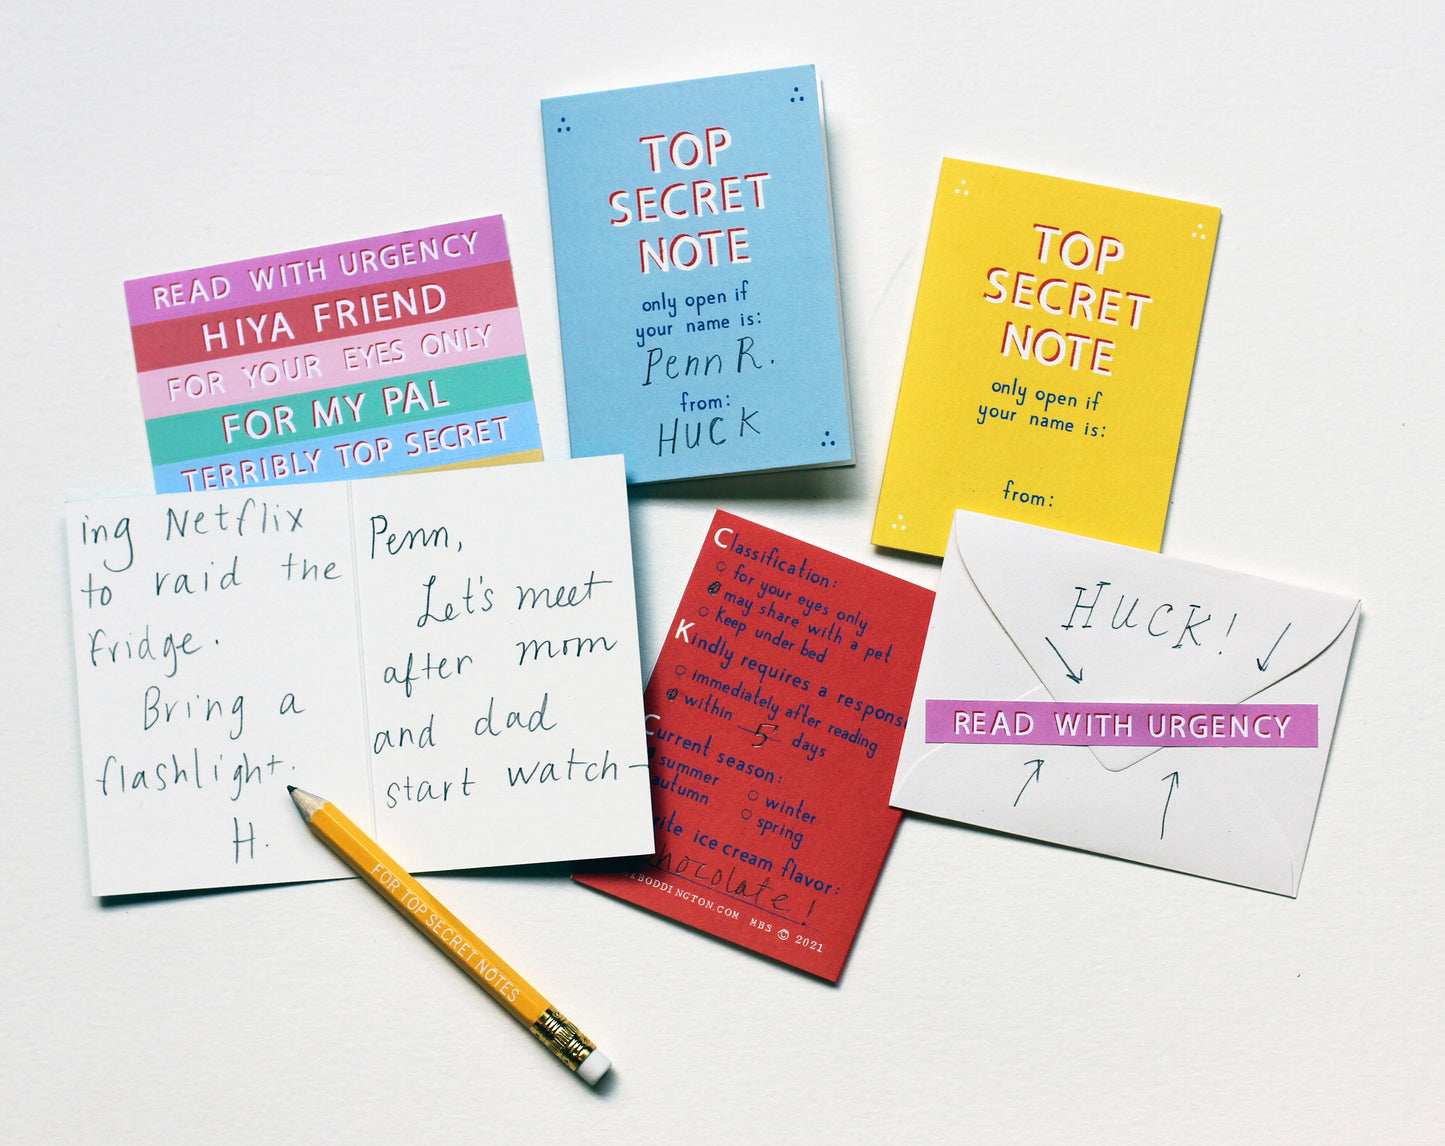 READ WITH URGENCY
HIYA FRIEND
FOR YOUR EYES ONLY
FOR MY PAL
TERRIBLY TOP SECRET
TOP
SECRET
NOTE
only open if
your name is:
Penn R.
from:
HUCK
TOP
SECRET
NOTE
only open if
your name is:
from:
ing Netflix
to raid the
fridge.
Bring a
flashlight.
H.
Penn,
Let's meet
after mom
and dad
start watch-
FOR TOP SECRET NOTES
Classification:
for your eyes only
may share with a pet
keep under bed
Kindly requires a respons
immediately after reading
within 5 days
Current season:
summer
winter
autumn
spring
ice cream flavor:
chocolate!
BODDINGTON.COM MBS © 2021
HUCK!
READ WITH URGENCY